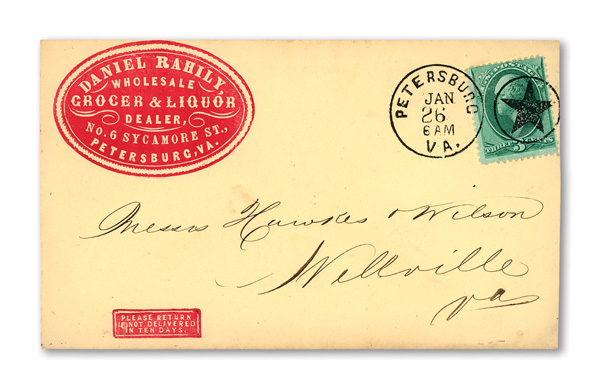 DANIEL RAHILY,
WHOLESALE
GROCER & LIQUOR
DEALER,
NO. 6 SYCAMORE ST.,
PETERSBURG, VA.
PETERSBURG
JAN
26
6 AM
VA.
U.S. POSTAGE
THREE CENTS
Messrs Hawkes & Wilson
Wellville
Va
PLEASE RETURN
IF NOT DELIVERED
IN TEN DAYS.